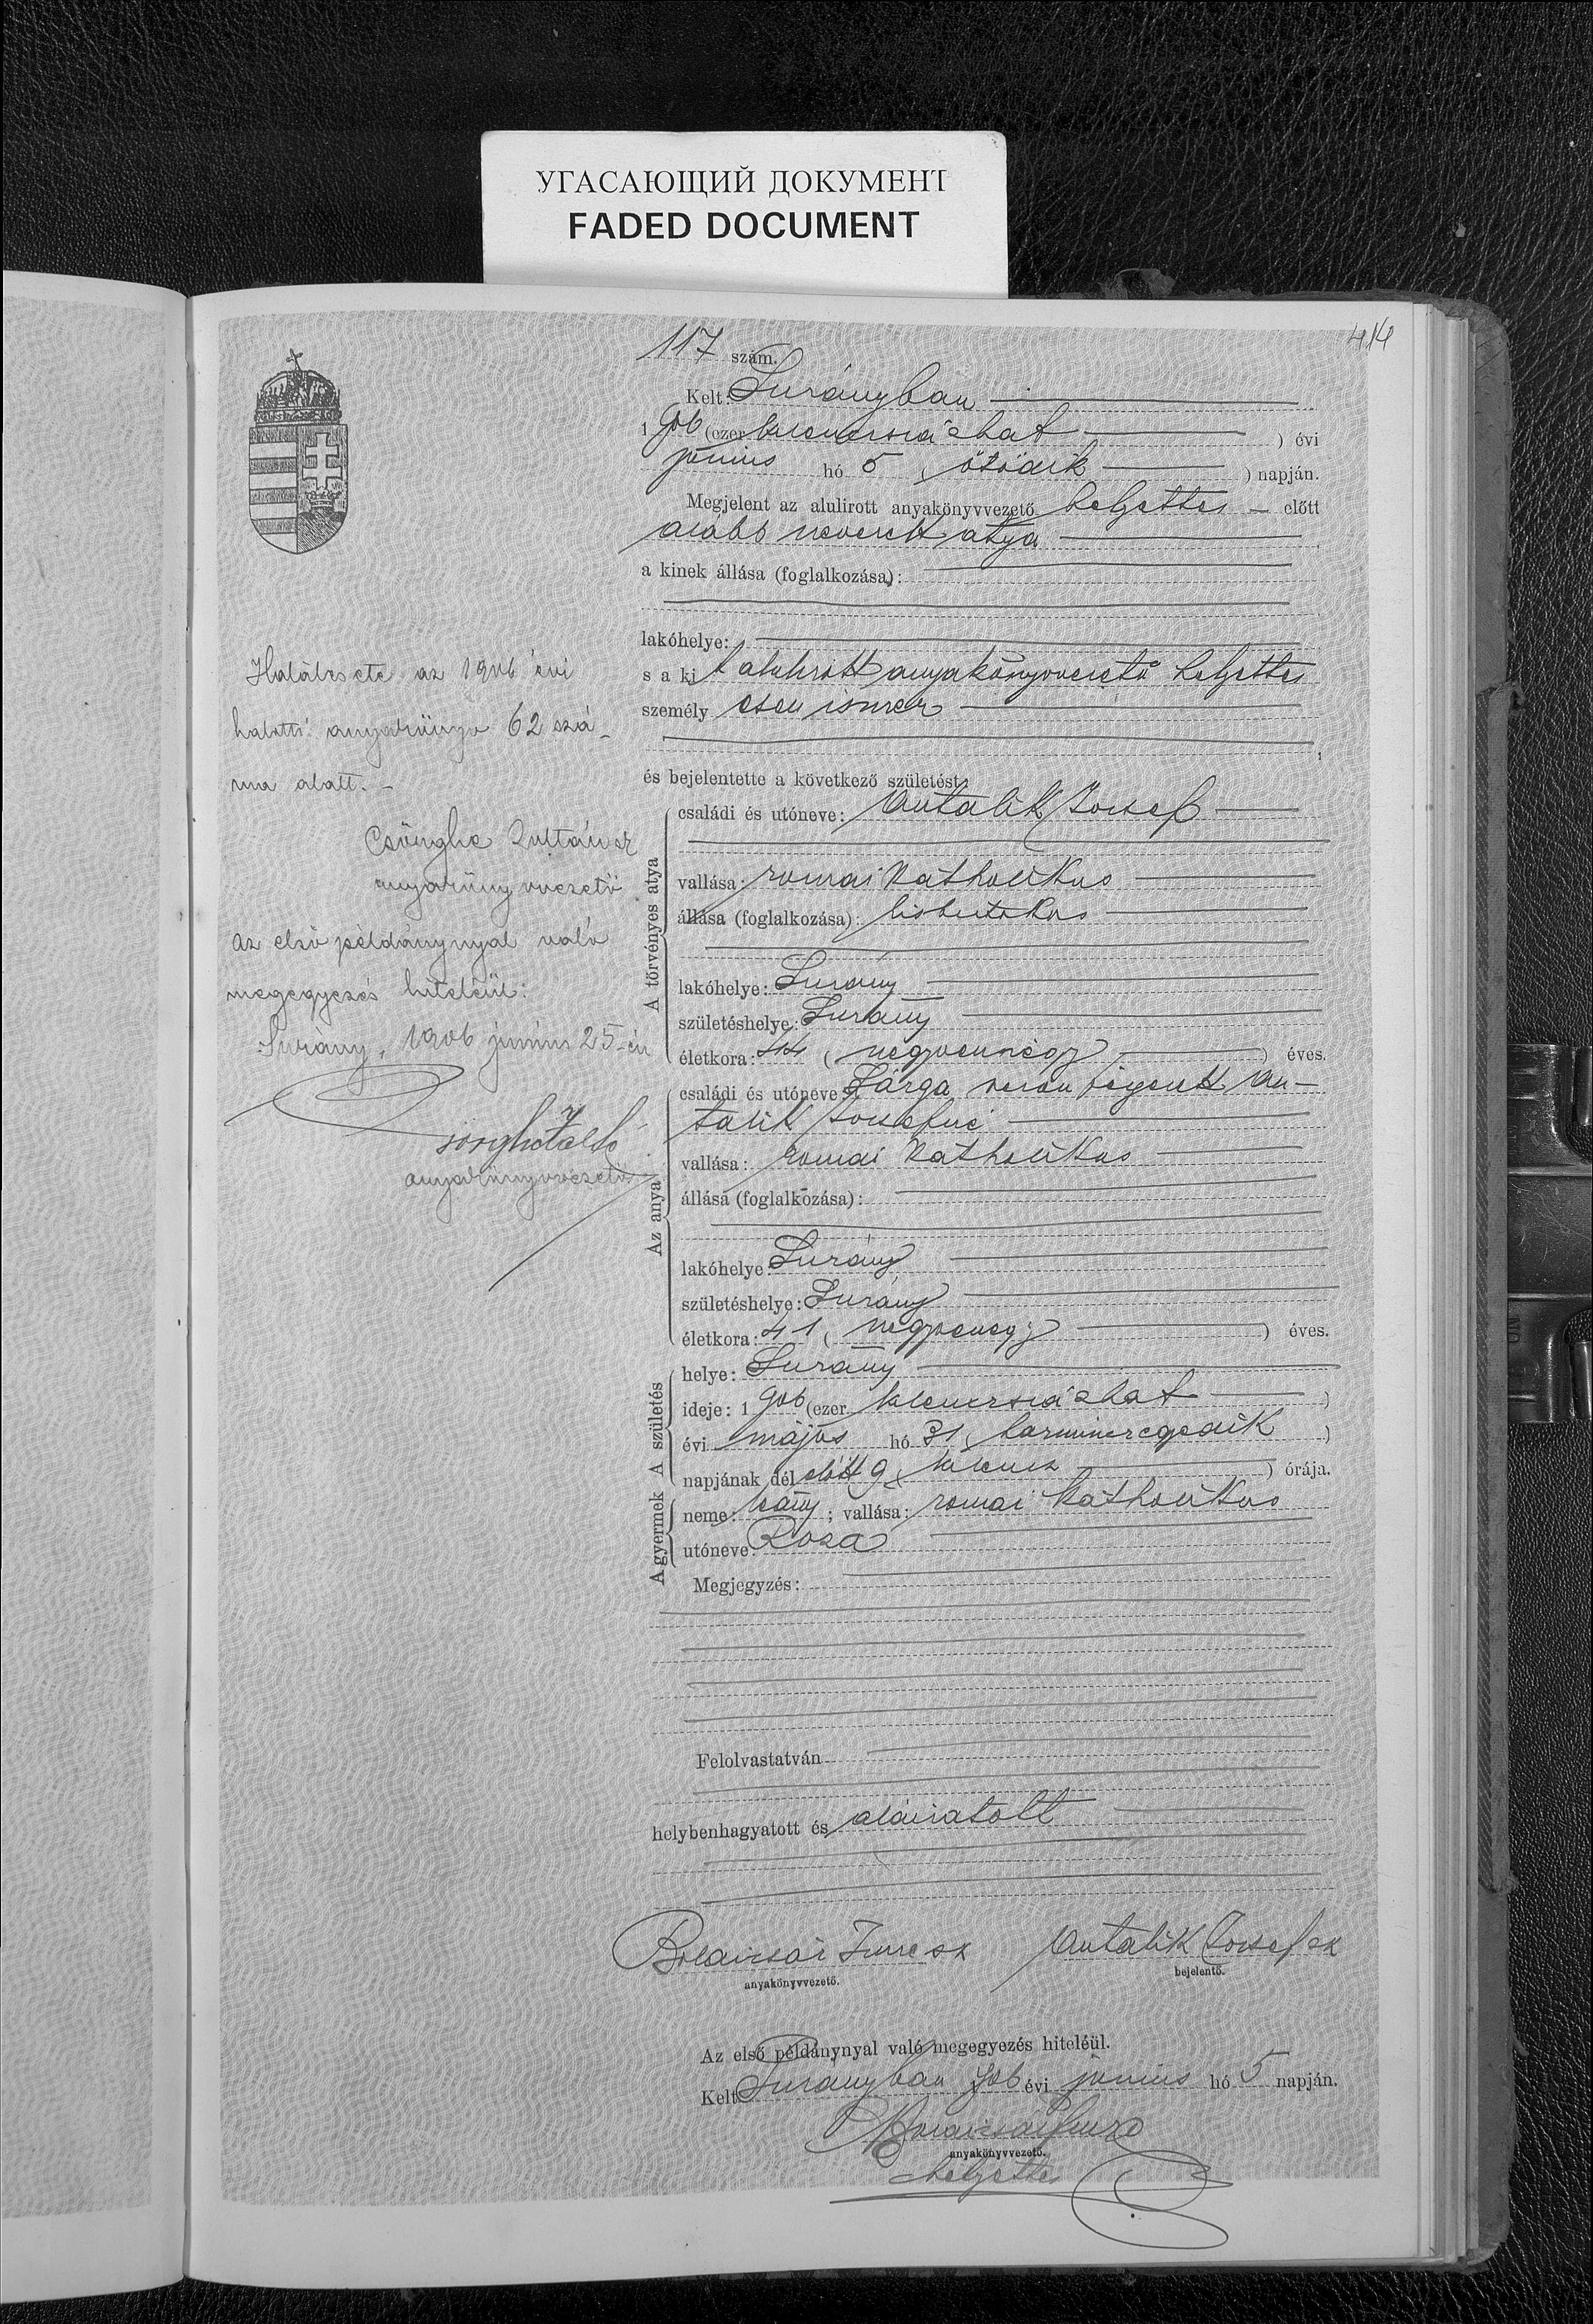 УГАСАЮЩИЙ ДОКУМЕНТ
FADED DOCUMENT
414
117 szám.
Kelt: Surányban
1 906 (ezer kilenczszázhat ) évi
június hó 5 ( ötödik ) napján.
Megjelent az alulirott anyakönyvvezető helyettes előtt
alább nevezett atya
a kinek állása (foglalkozása):
lakóhelye:
s a kit alulirott anyakönyvvezető helyettes
személyesen ismer
és bejelentette a következő születést:
A törvényes atya
családi és utóneve: Antalik József
vallása: romai katholikus
állása (foglalkozása): kisbirtokos
lakóhelye: Surány
születéshelye: Surány
életkora: 44 ( negyvennégy ) éves.
Az anya
családi és utóneve: Sárga férjezett An-
talik Józsefné
vallása: romai katholikus
állása (foglalkozása):
lakóhelye: Surány
születéshelye: Surány
életkora: 41 ( negyvenegy ) éves.
A születés
helye: Surány
ideje: 1 906 (ezer kilenczszázhat )
évi május hó 31 ( harminczegyedik )
napjának dél előtt 9 ( kilencz ) órája.
A gyermek
neme: leány ; vallása: romai katholikus
utóneve: Roza
Megjegyzés:
Felolvastatván
helybenhagyatott és aláiratott
Imre sk Antalik József sk
anyakönyvvezető. bejelentő.
Az első példánynyal való megegyezés hiteléül.
Kelt Surányban 906 évi június hó 5 napján.
anyakönyvvezető.
helyettes
Halálesete az 1906 évi
halotti anyakönyv 62 szá-
ma alatt. -
Zoltán sk
anyakönyvvezető
Az első példánynyal való
megegyezés hiteléül:
Surány, 1906 június 25-én
anyakönyvvezető